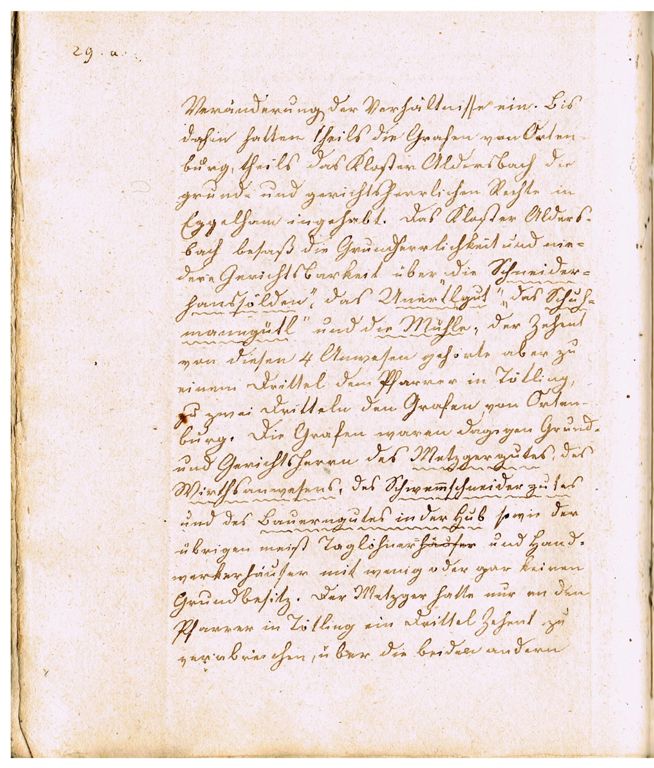 29. a.
Veränderung der Verhältnisse ein. Bis
dahin hatten theils die Grafen von Orten-
burg, theils das Kloster Aldersbach die
grund- und gerichtsherrlichen Rechte in
Egglham ingehabt. Das Kloster Alders-
bach besaß die Grundherrlichkeit und nie-
dere Gerichtsbarkeit über die Schneider-
hanssölden", das "Unertlgut", "das Schuh-
manngütl" und die Mühle, der Zehent
von diesen 4 Anwesen gehörte aber zu
einem Drittel dem Pfarrer in Tötling,
zu zwei Dritteln den Grafen von Orten-
burg. Die Grafen waren dagegen Grund-
und Gerichtsherrn des Metzgergutes, des
Wirthsanwesens, des Schwemmschneidergutes
und des Bauerngutes in der Hub sowie der
übrigen meist Taglöhnerhäuser und Hand-
werkerhäuser mit wenig oder gar keinen
Grundbesitz. Der Metzger hatte nur an den
Pfarrer in Tötling ein Drittel Zehent zu
verabreichen, über die beiden andern